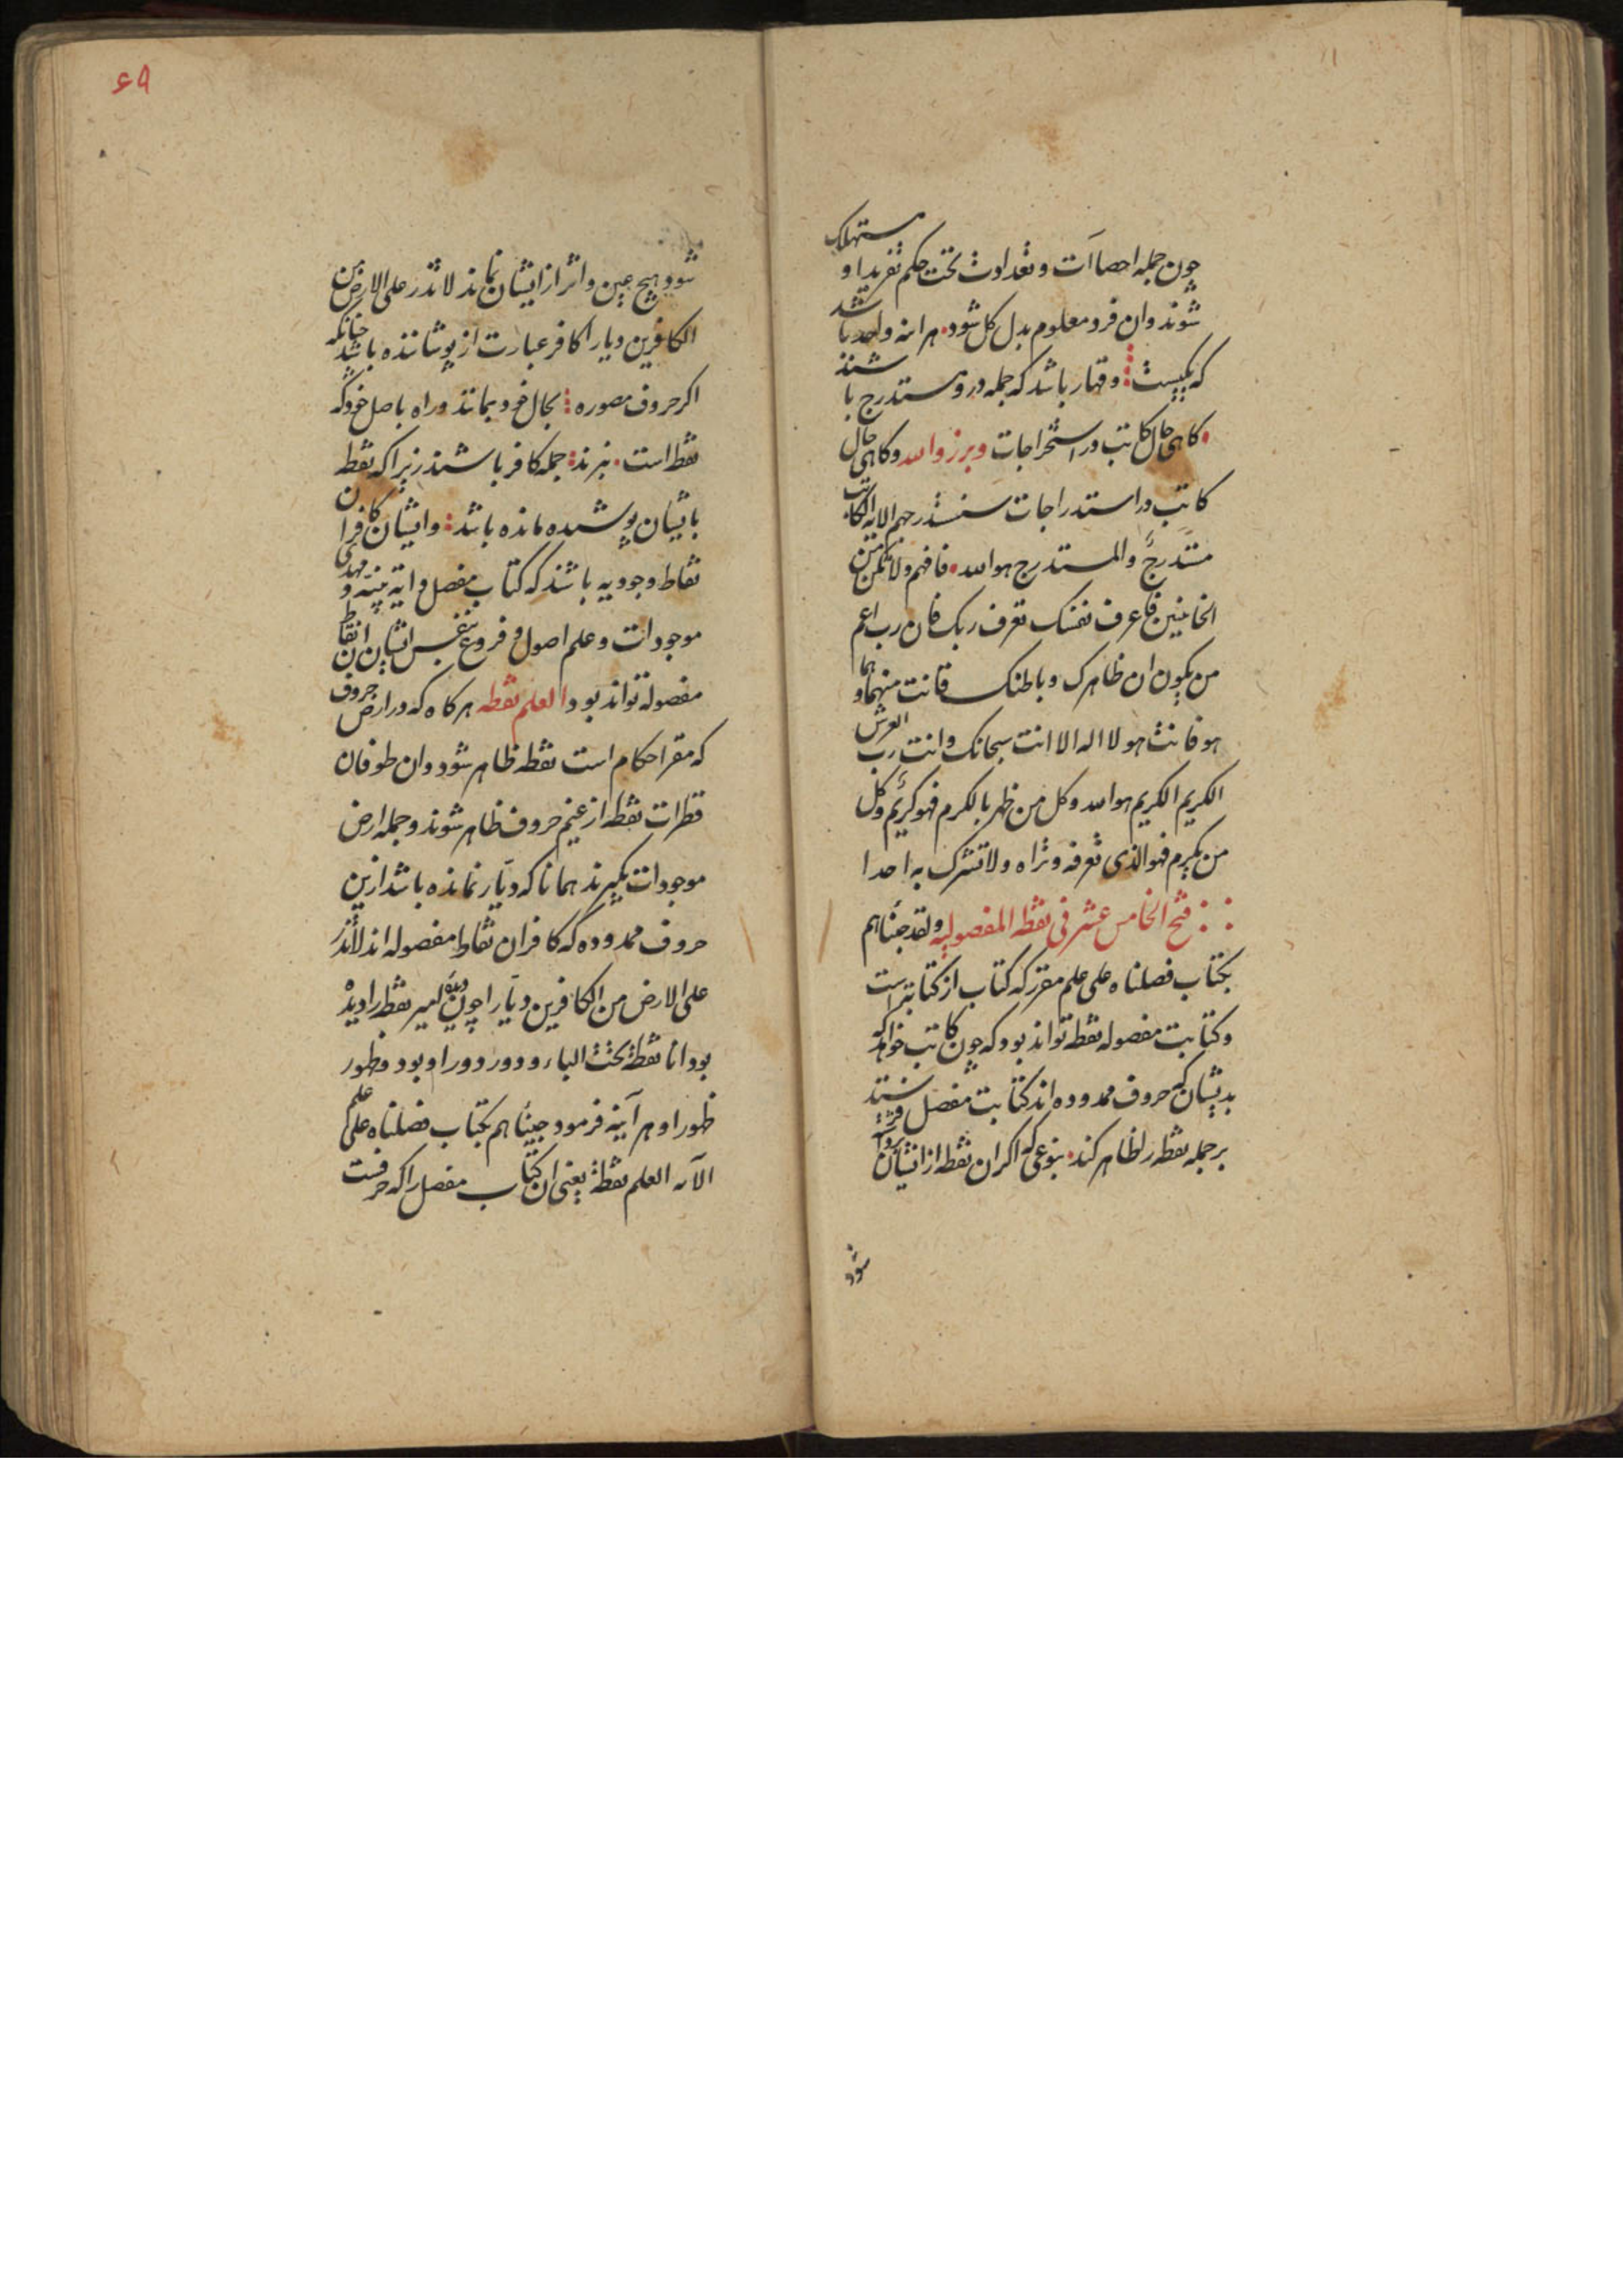 چون جمله احصاآت و تعدادات تحت حکم تفرید او مستهلک
شوند و ان فرد معلوم بدل کل شود هر اینه واحد باشد
که یکیست و قهار باشد که جمله درو مستدرج باشند
کاهی حال کاتب در استخراجات وبرزوا لله و کاهی حال
کاتب در استدراجات سنستدرجهم الایه الکاتب
مستدرج والمستدرج هو الله فافهم ولا تکن من
الخائبین فاعرف نفسک تعرف ربک فان رب اعم
من یکون ان ظاهرک و باطنک فانت منهما و هما
هو فانت هو لا اله الا انت سبحانک وانت رب العرش
الکریم الکریم هو الله وکل من ظهر بالکرم فهو کریم وکل
من یکرم فهو الذی تعرفه و تراه ولا تشرک به احدا
فتح الخامس عشر فی نقطه المفصولیه ولقد جئناهم
بکتاب فصلناه علی علم مقرر که کتاب از کتابتست
و کتابت مفصوله نقطه تواند بود که چون کاتب خواهد که
بدیشان که حروف ممدوده اند کتابت مفصل فرستد
بر جمله نقطه را ظاهر کند بنوعی که اکر ان نقطه از ایشان
شود
۶۹
شود هیچ عین و اثر از ایشان نماند لا تذر علی الارض من
الکافرین دیارا کافر عبارت از پوشاننده باشد چنانکه
اکر حروف مصوره بحال خود بمانند و راه باصل خود که
نقط است نبرند جمله کافر باشند زیرا که نقط
بایشان پوشیده مانده باشد و ایشان کافران
نقاط وجودیه باشند که کتاب مفصل و ایة بینه و مهدی
موجودات و علم اصول و فروع بنفس ایشان ان نقاط
مفصوله تواند بود العلم نقطه هرکاه که در ارض حروف
که مقر احکام است نقطه ظاهر شود و ان طوفان
قطرات نقطه از غیم حروف ظاهر شوند و جمله ارض
موجودات بکیرند همانا که دیار نمانده باشد ازین
حروف ممدوده که کافران نقاط مفصوله اند لا تذر
علی الارض من الکافرین دیارا چون لمیر نقط را دیده
بود انا نقطة تحت الباء و دور دور او بود و ظهور
ظهور او هر آینه فرمود جئناهم بکتاب فصلناه علی علم
الآیه العلم نقطة یعنی ان کتاب مفصل را که حرفست